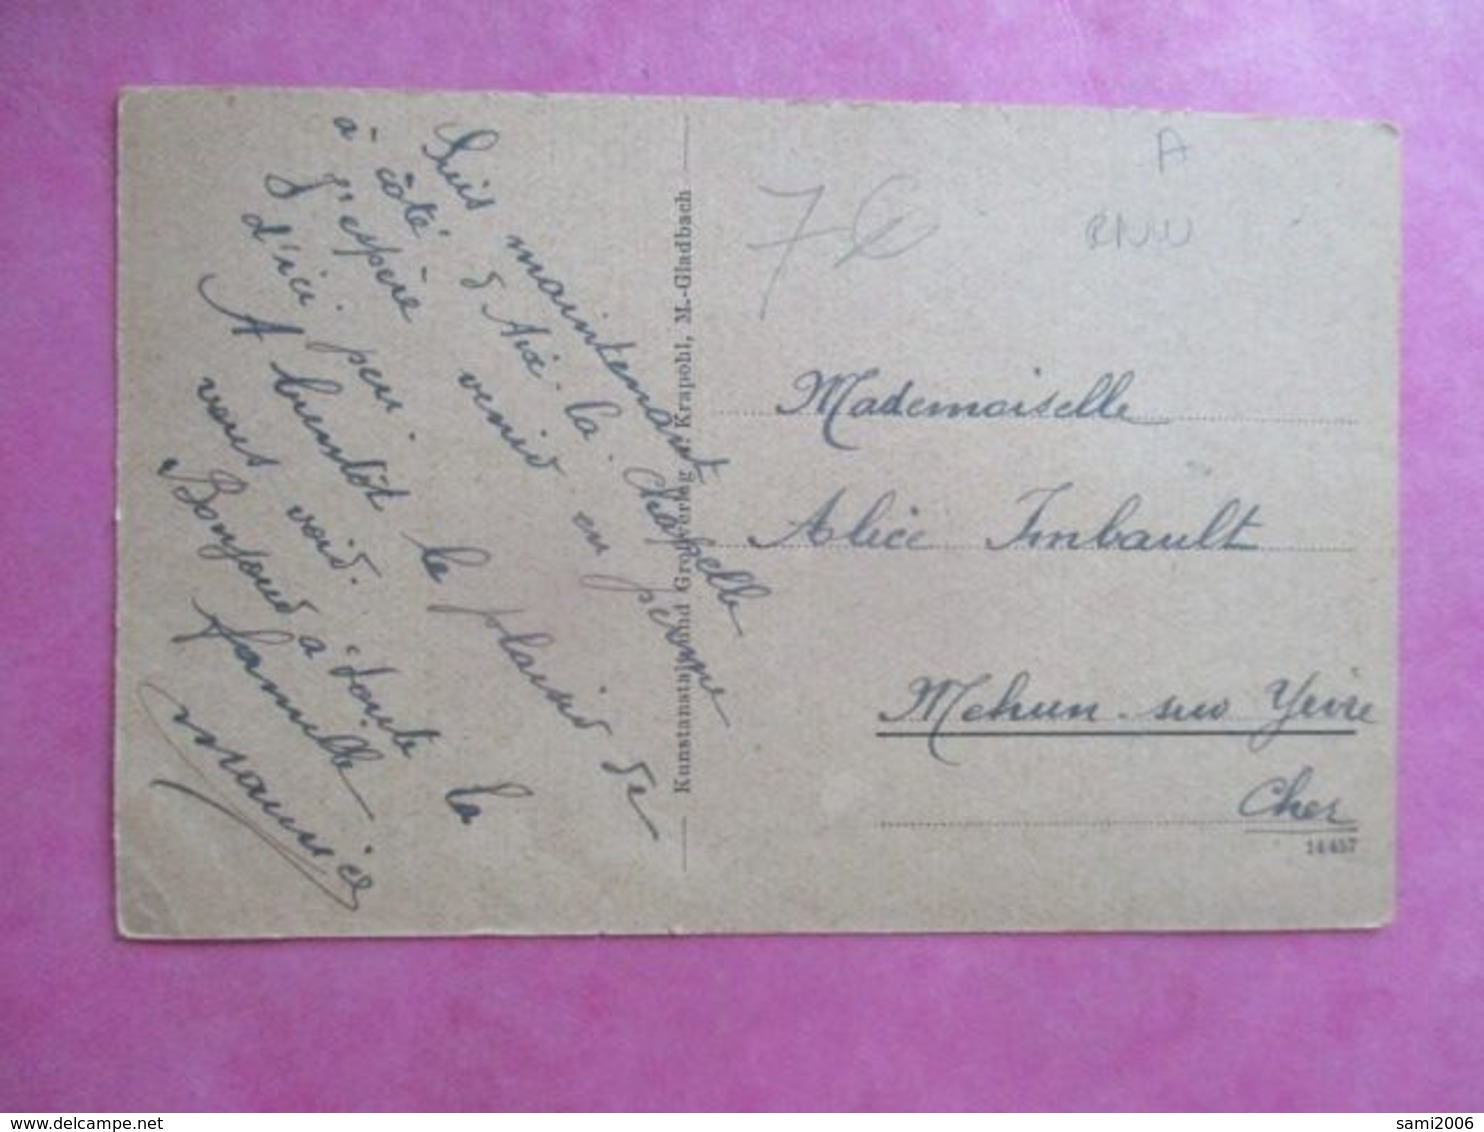 Suis maintenant
à côté d'Aix-la-Chapelle
J'espère venir en perme
d'ici peu.
A bientôt le plaisir de
vous voir.
Bonjour à toute la
famille
Maurice
Kunstanstalt und Großverlag Krapohl, M.-Gladbach
A
7€
RNW
Mademoiselle
Alice Imbault
Mehun-sur Yèvre
Cher
14457
sami2006